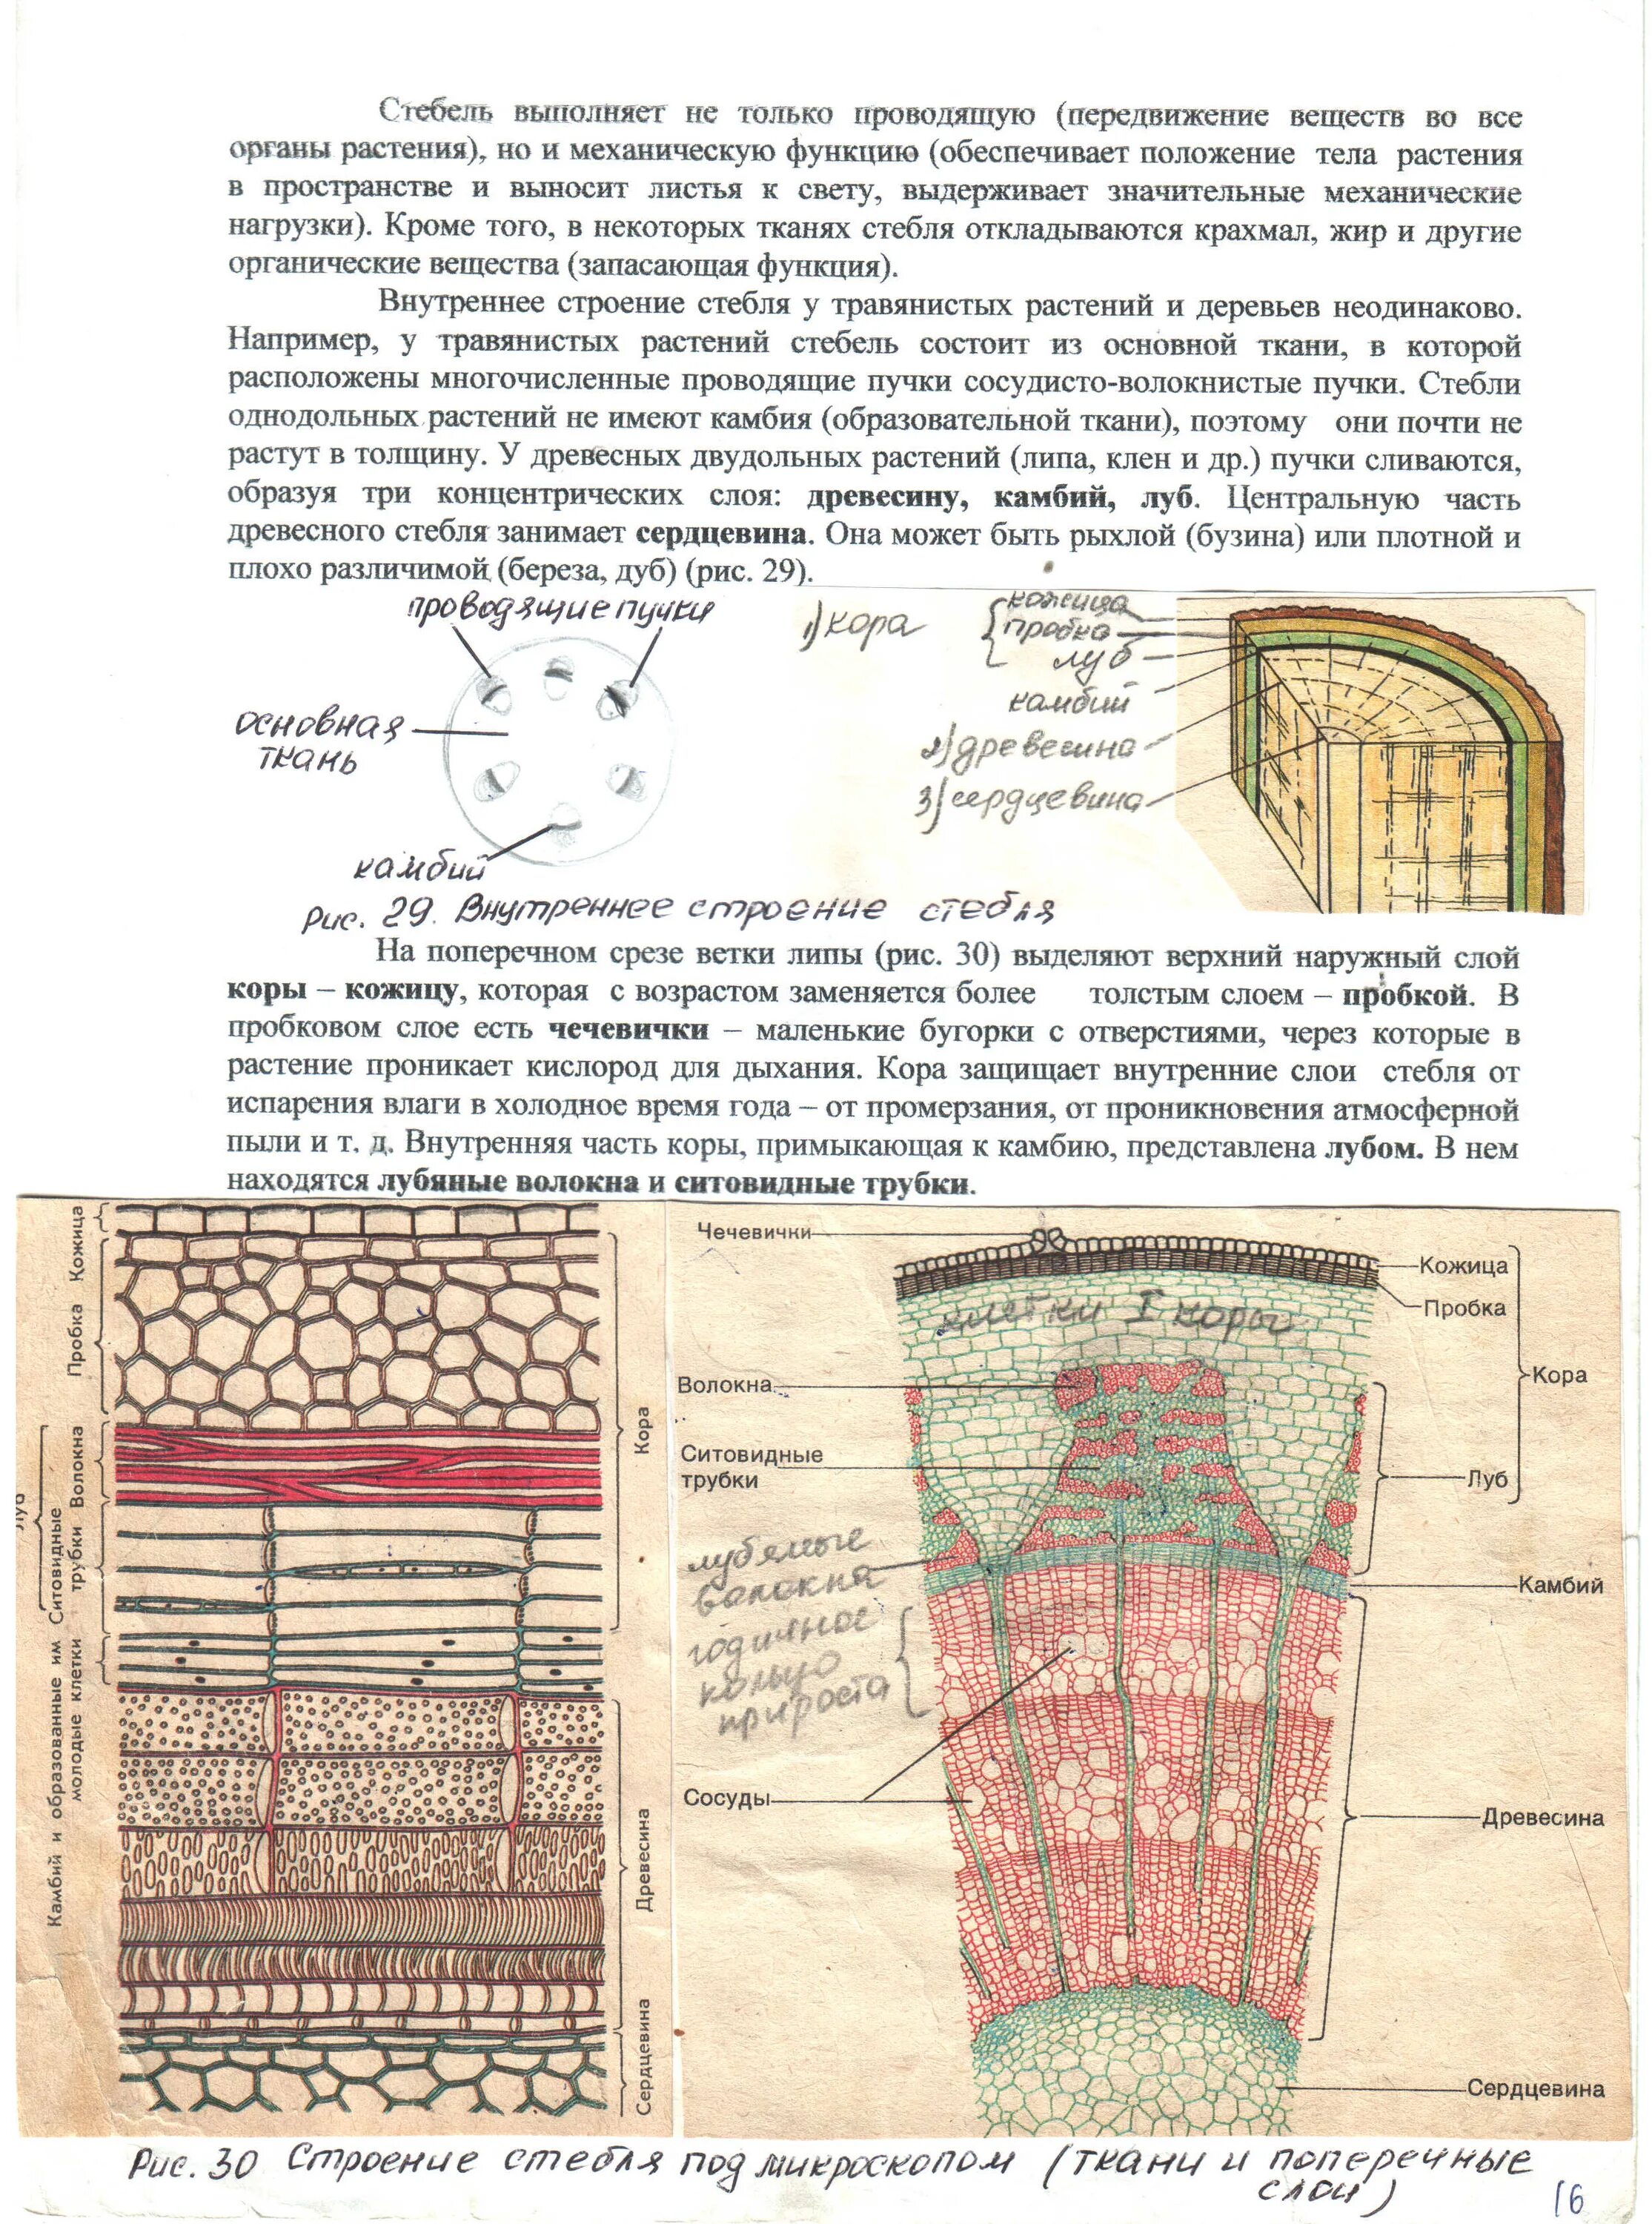 Стебель выполняет не только проводящую (передвижение веществ во все
органы растения), но и механическую функцию (обеспечивает положение тела растения
в пространстве и выносит листья к свету, выдерживает значительные механические
нагрузки). Кроме того, в некоторых тканях стебля откладываются крахмал, жир и другие
органические вещества (запасающая функция).
Внутреннее строение стебля у травянистых растений и деревьев неодинаково.
Например, у травянистых растений стебель состоит из основной ткани, в которой
расположены многочисленные проводящие пучки сосудисто-волокнистые пучки. Стебли
однодольных растений не имеют камбия (образовательной ткани), поэтому они почти не
растут в толщину. У древесных двудольных растений (липа, клен и др.) пучки сливаются,
образуя три концентрических слоя: древесину, камбий, луб. Центральную часть
древесного стебля занимает сердцевина. Она может быть рыхлой (бузина) или плотной и
плохо различимой (береза, дуб) (рис. 29).
проводящие пучки
основная
ткань
камбий
1) кора
кожица
пробка
луб
камбий
2) древесина
3) сердцевина
Рис. 29. Внутреннее строение стебля
На поперечном срезе ветки липы (рис. 30) выделяют верхний наружный слой
коры – кожицу, которая с возрастом заменяется более толстым слоем – пробкой. В
пробковом слое есть чечевички – маленькие бугорки с отверстиями, через которые в
растение проникает кислород для дыхания. Кора защищает внутренние слои стебля от
испарения влаги в холодное время года – от промерзания, от проникновения атмосферной
пыли и т. д. Внутренняя часть коры, примыкающая к камбию, представлена лубом. В нем
находятся лубяные волокна и ситовидные трубки.
Кожица
Пробка
Луб
Волокна
Ситовидные
трубки
Камбий и образованные им
молодые клетки
Кора
Древесина
Сердцевина
Чечевички
клетки I коры
Волокна
Ситовидные
трубки
лубяные
волокна
годичное
кольцо
прироста
Сосуды
Кожица
Пробка
Кора
Луб
Камбий
Древесина
Сердцевина
Рис. 30 Строение стебля под микроскопом (ткани и поперечные
слои)
16